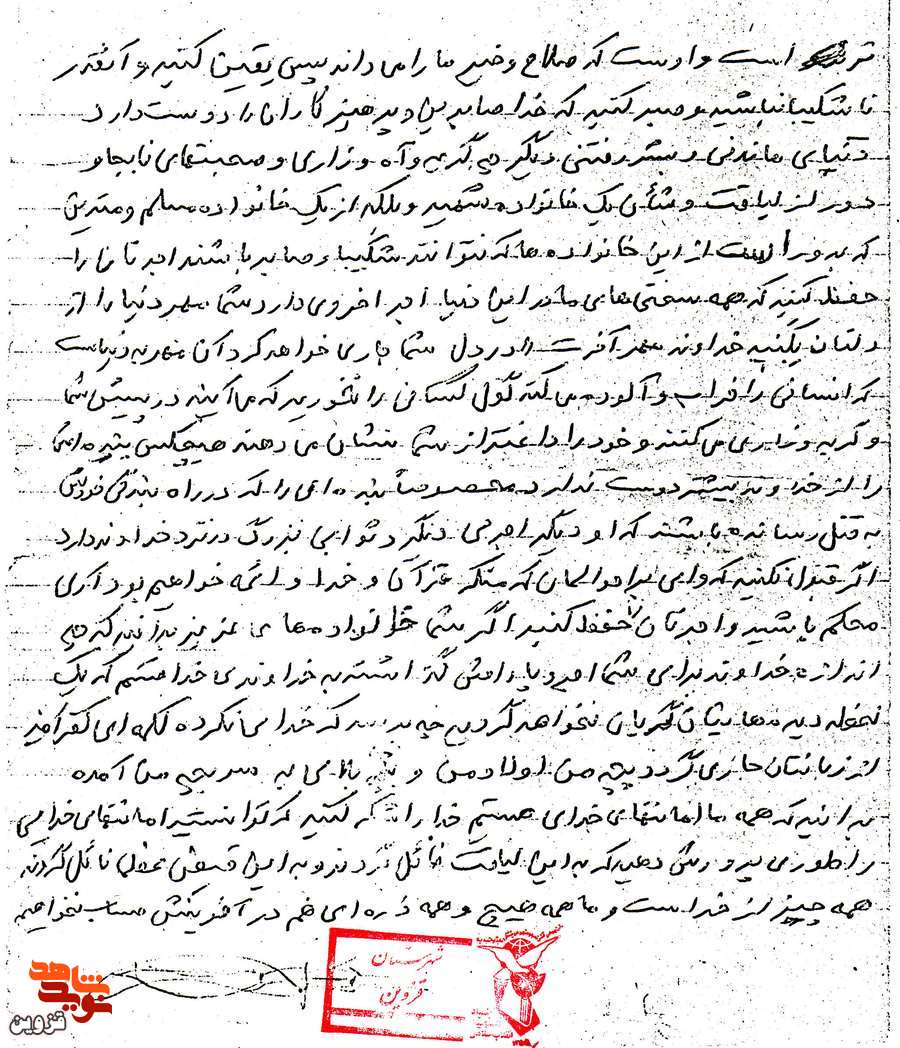 است و اوست که صلاح وضع ما را می داند پس یقین کنید و آنقدر
نا شکیبا نباشید و صبر کنید که خدا صابرین و پرهیز کاران را دوست دارد
دنیای ماندنی و بشر رفتنی دیگر چه گریه و آه و زاری و صحبتهای نابجا و
دور از لیاقت و شأن یک خانواده شهید و بلکه از یک خانواده مسلم و متدین
که بدور است از این خانواده ها که نتوانند شکیبا و صابر باشند اجرتان را
حفظ کنید که همه سختی های ما در این دنیا اجر اخروی دارد شما مهر دنیا را از
دلتان بکنید خداوند مهر آخرت را در دل شما جاری خواهد کرد آن مهر به دنیاست
که انسانی را خراب و آلوده می کند گول کسانی را نخورید که می آیند در پیش شما
و گریه و زاری می کنند و خود را داغتر از شما نشان می دهند هیچکس بنده ای
را از خداوند بیشتر دوست ندارد مخصوصاً بنده ای را که در راه بندگی خودش
به قتل رسانده باشند که او دیگر اجری دیگر و ثوابی بزرگ در نزد خداوند دارد
اگر قبول نکنید که وای بر احوالمان که منکر قرآن و خدا و ائمه خواهیم بود آری
محکم باشید و اجرتان را حفظ کنید اگر شما خانواده های عزیز بدانید که چه
اندازه خداوند برای شما اجر و پاداش گذاشته به خداوندی خدا قسم که یک
لحظه دیده هایتان گریان نخواهد گردید چه برسد که خدای نکرده کلمه ای کفر آمیز
از زبانتان جاری گردد بچه من اولاد من و چه بلایی به سر بچه من آمده
بدانید که همه ما امانتهای خدای هستیم خدا را شکر کنید که توانستید امانتهای خدایی
را طوری پرورش دهید که به این لیاقت نائل گردند و به این فیض عظما نائل گردند
همه چیز از خداست و ما همه هیچ و همه ذره ای هم در آفرینش حساب نخواهیم
شهرستان
قزوین
نوید شاهد
قزوین